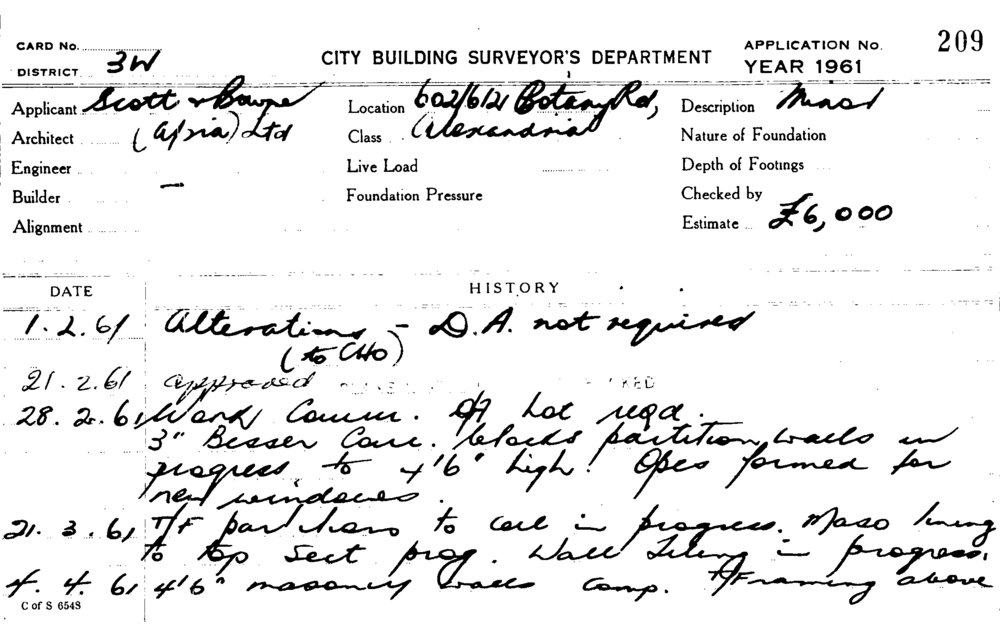 CARD No.
DISTRICT 3W
CITY BUILDING SURVEYOR'S DEPARTMENT
APPLICATION No. 209
YEAR 1961
Applicant Scott & Bowne
Architect (Asia) Ltd
Engineer
Builder —
Alignment
Location 602/612 Botany Rd,
Class Alexandria
Live Load
Foundation Pressure
Description Minor
Nature of Foundation
Depth of Footings
Checked by
Estimate £6,000
DATE HISTORY
1.2.61 Alterations - D.A. not required
(to CHO)
21.2.61 approved
28.2.61 Work Comm. not reqd.
3" Besser Conc. blocks partition walls in
progress to 4'6" high. Opes formed for
new windows.
21.3.61 T/F partitions to ceil in progress. Maso lining
to top sect prog. Wall Tiling in progress.
4.4.61 4'6" masonry walls comp. T/Framing above
C of S 6548